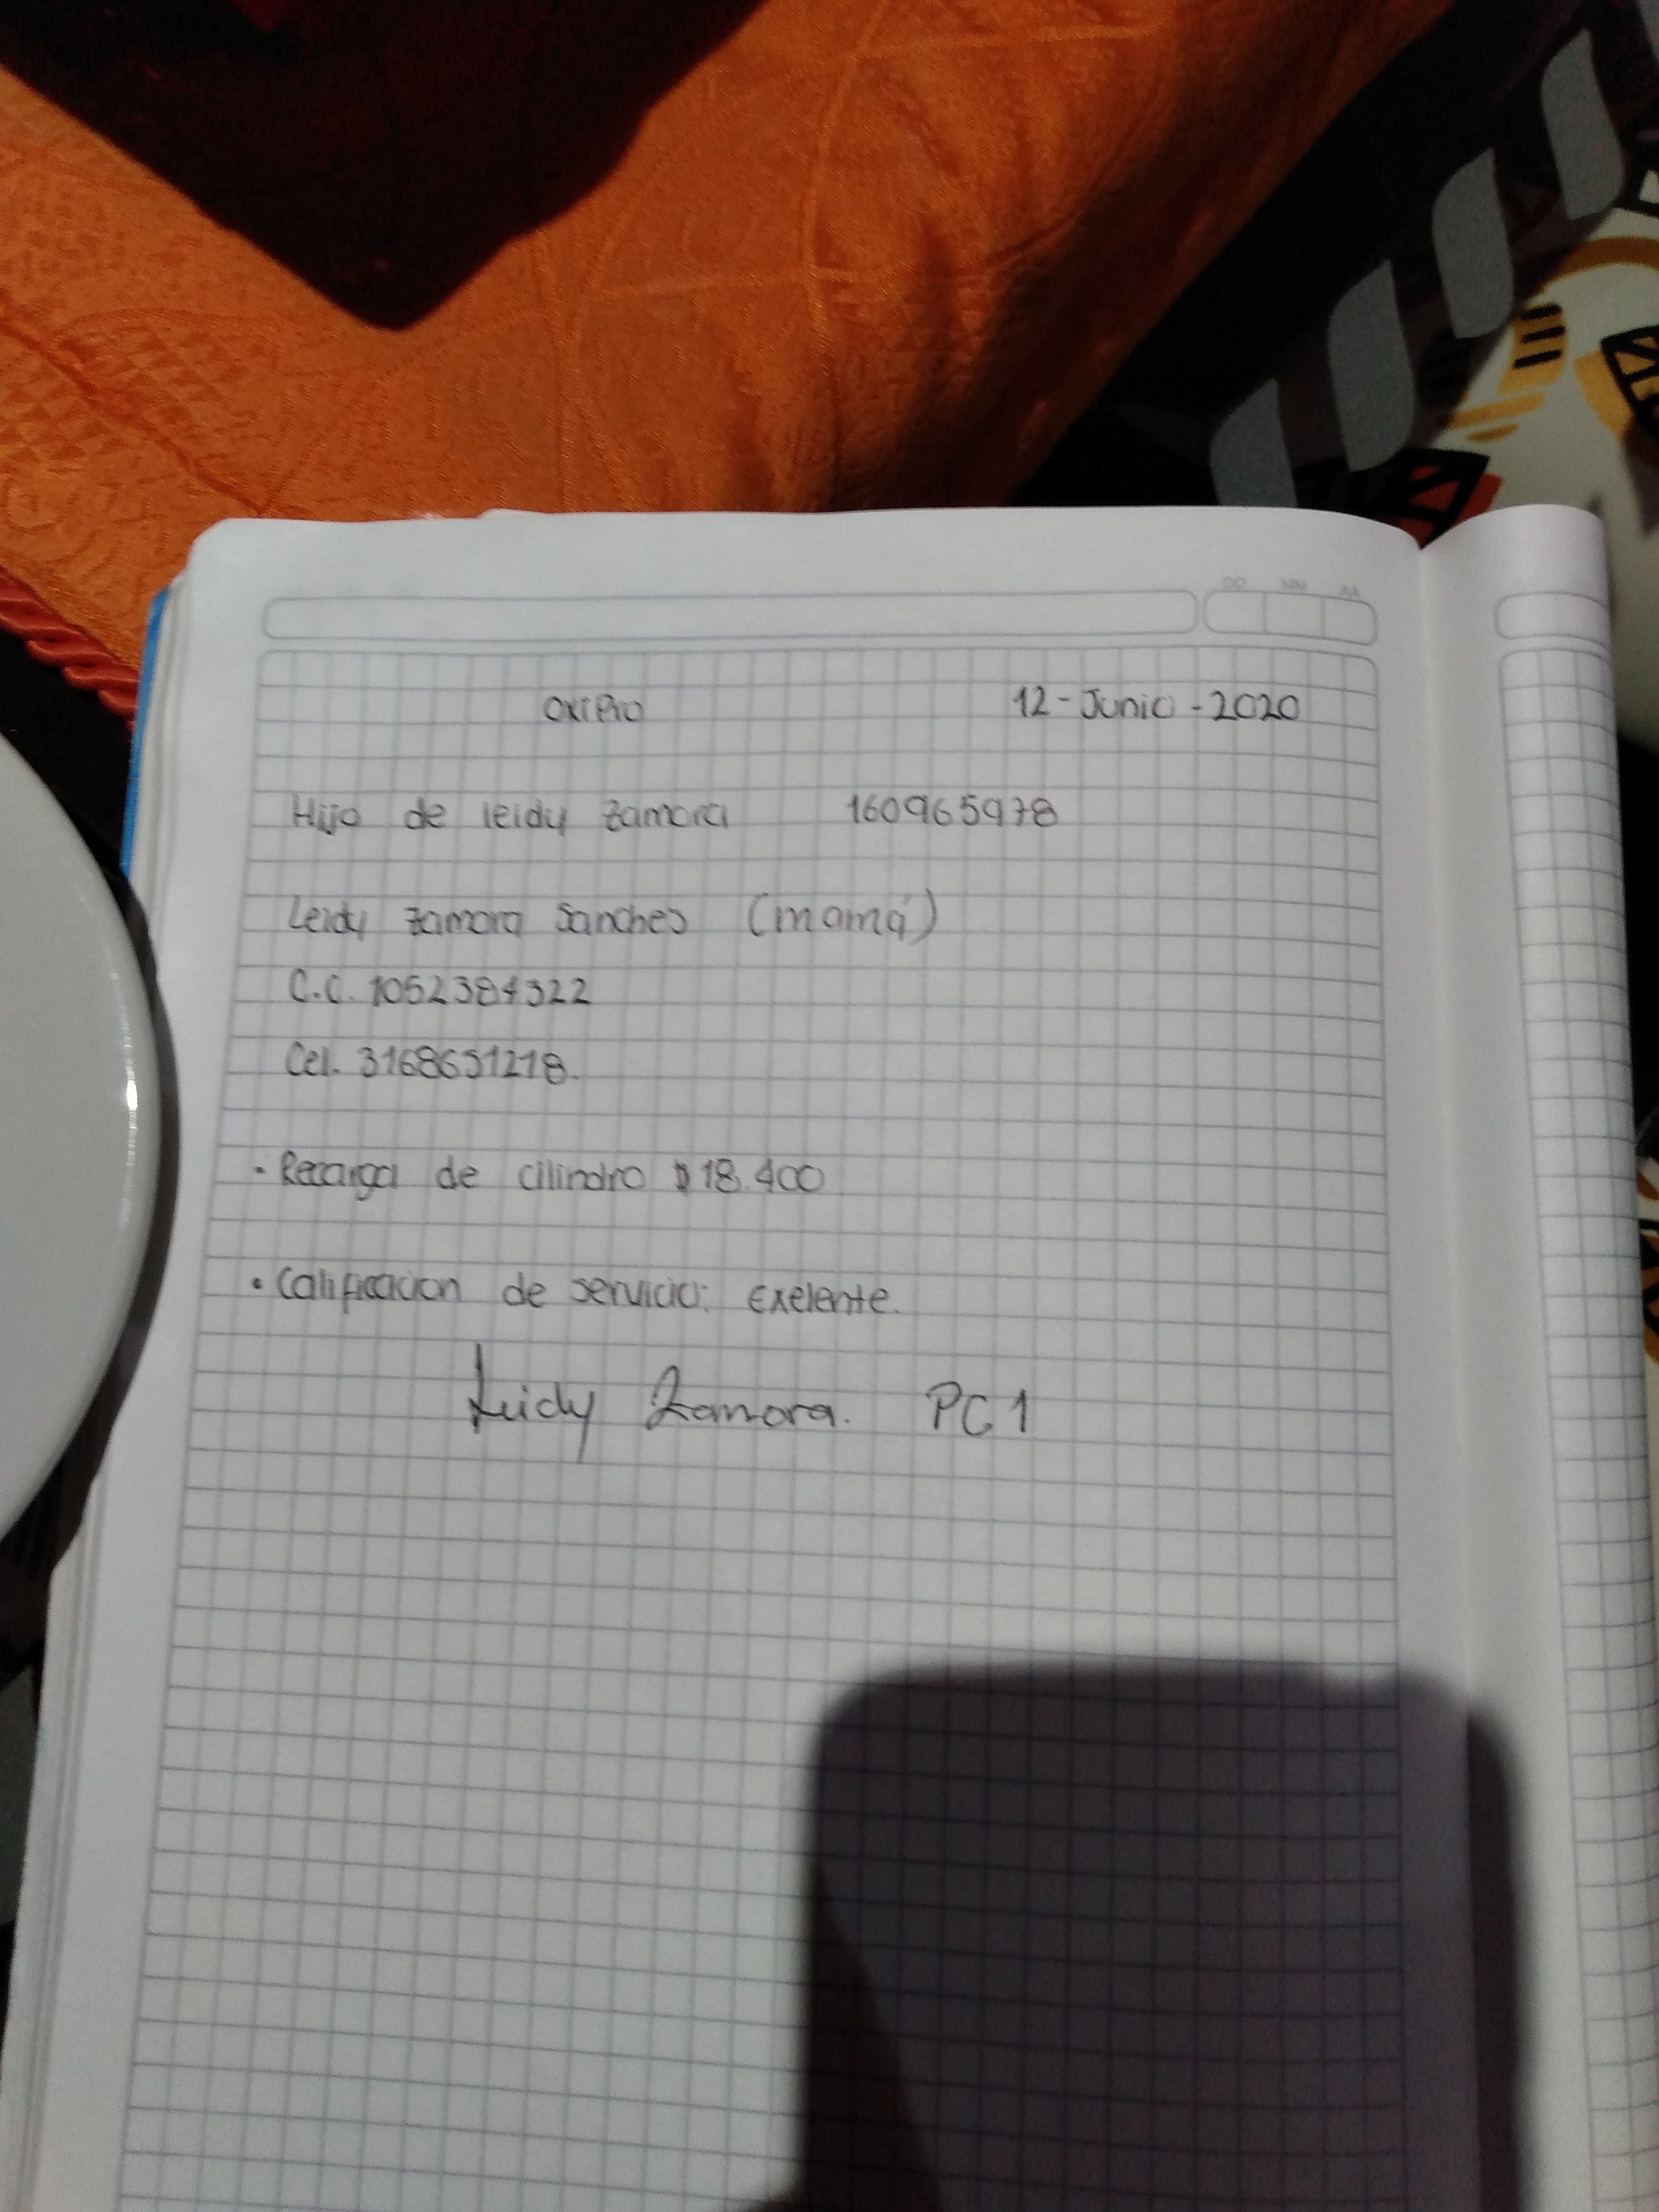 DD MM AA
OxiPro 12-Junio-2020
Hijo de leidy zamora 160965978
Leidy zamora Sanches (mamá)
C.C. 1052384322
Cel. 3168651218.
• Recarga de cilindro $18.400
• Calificacion de servicio: Exelente.
Leidy Zamora. PC1